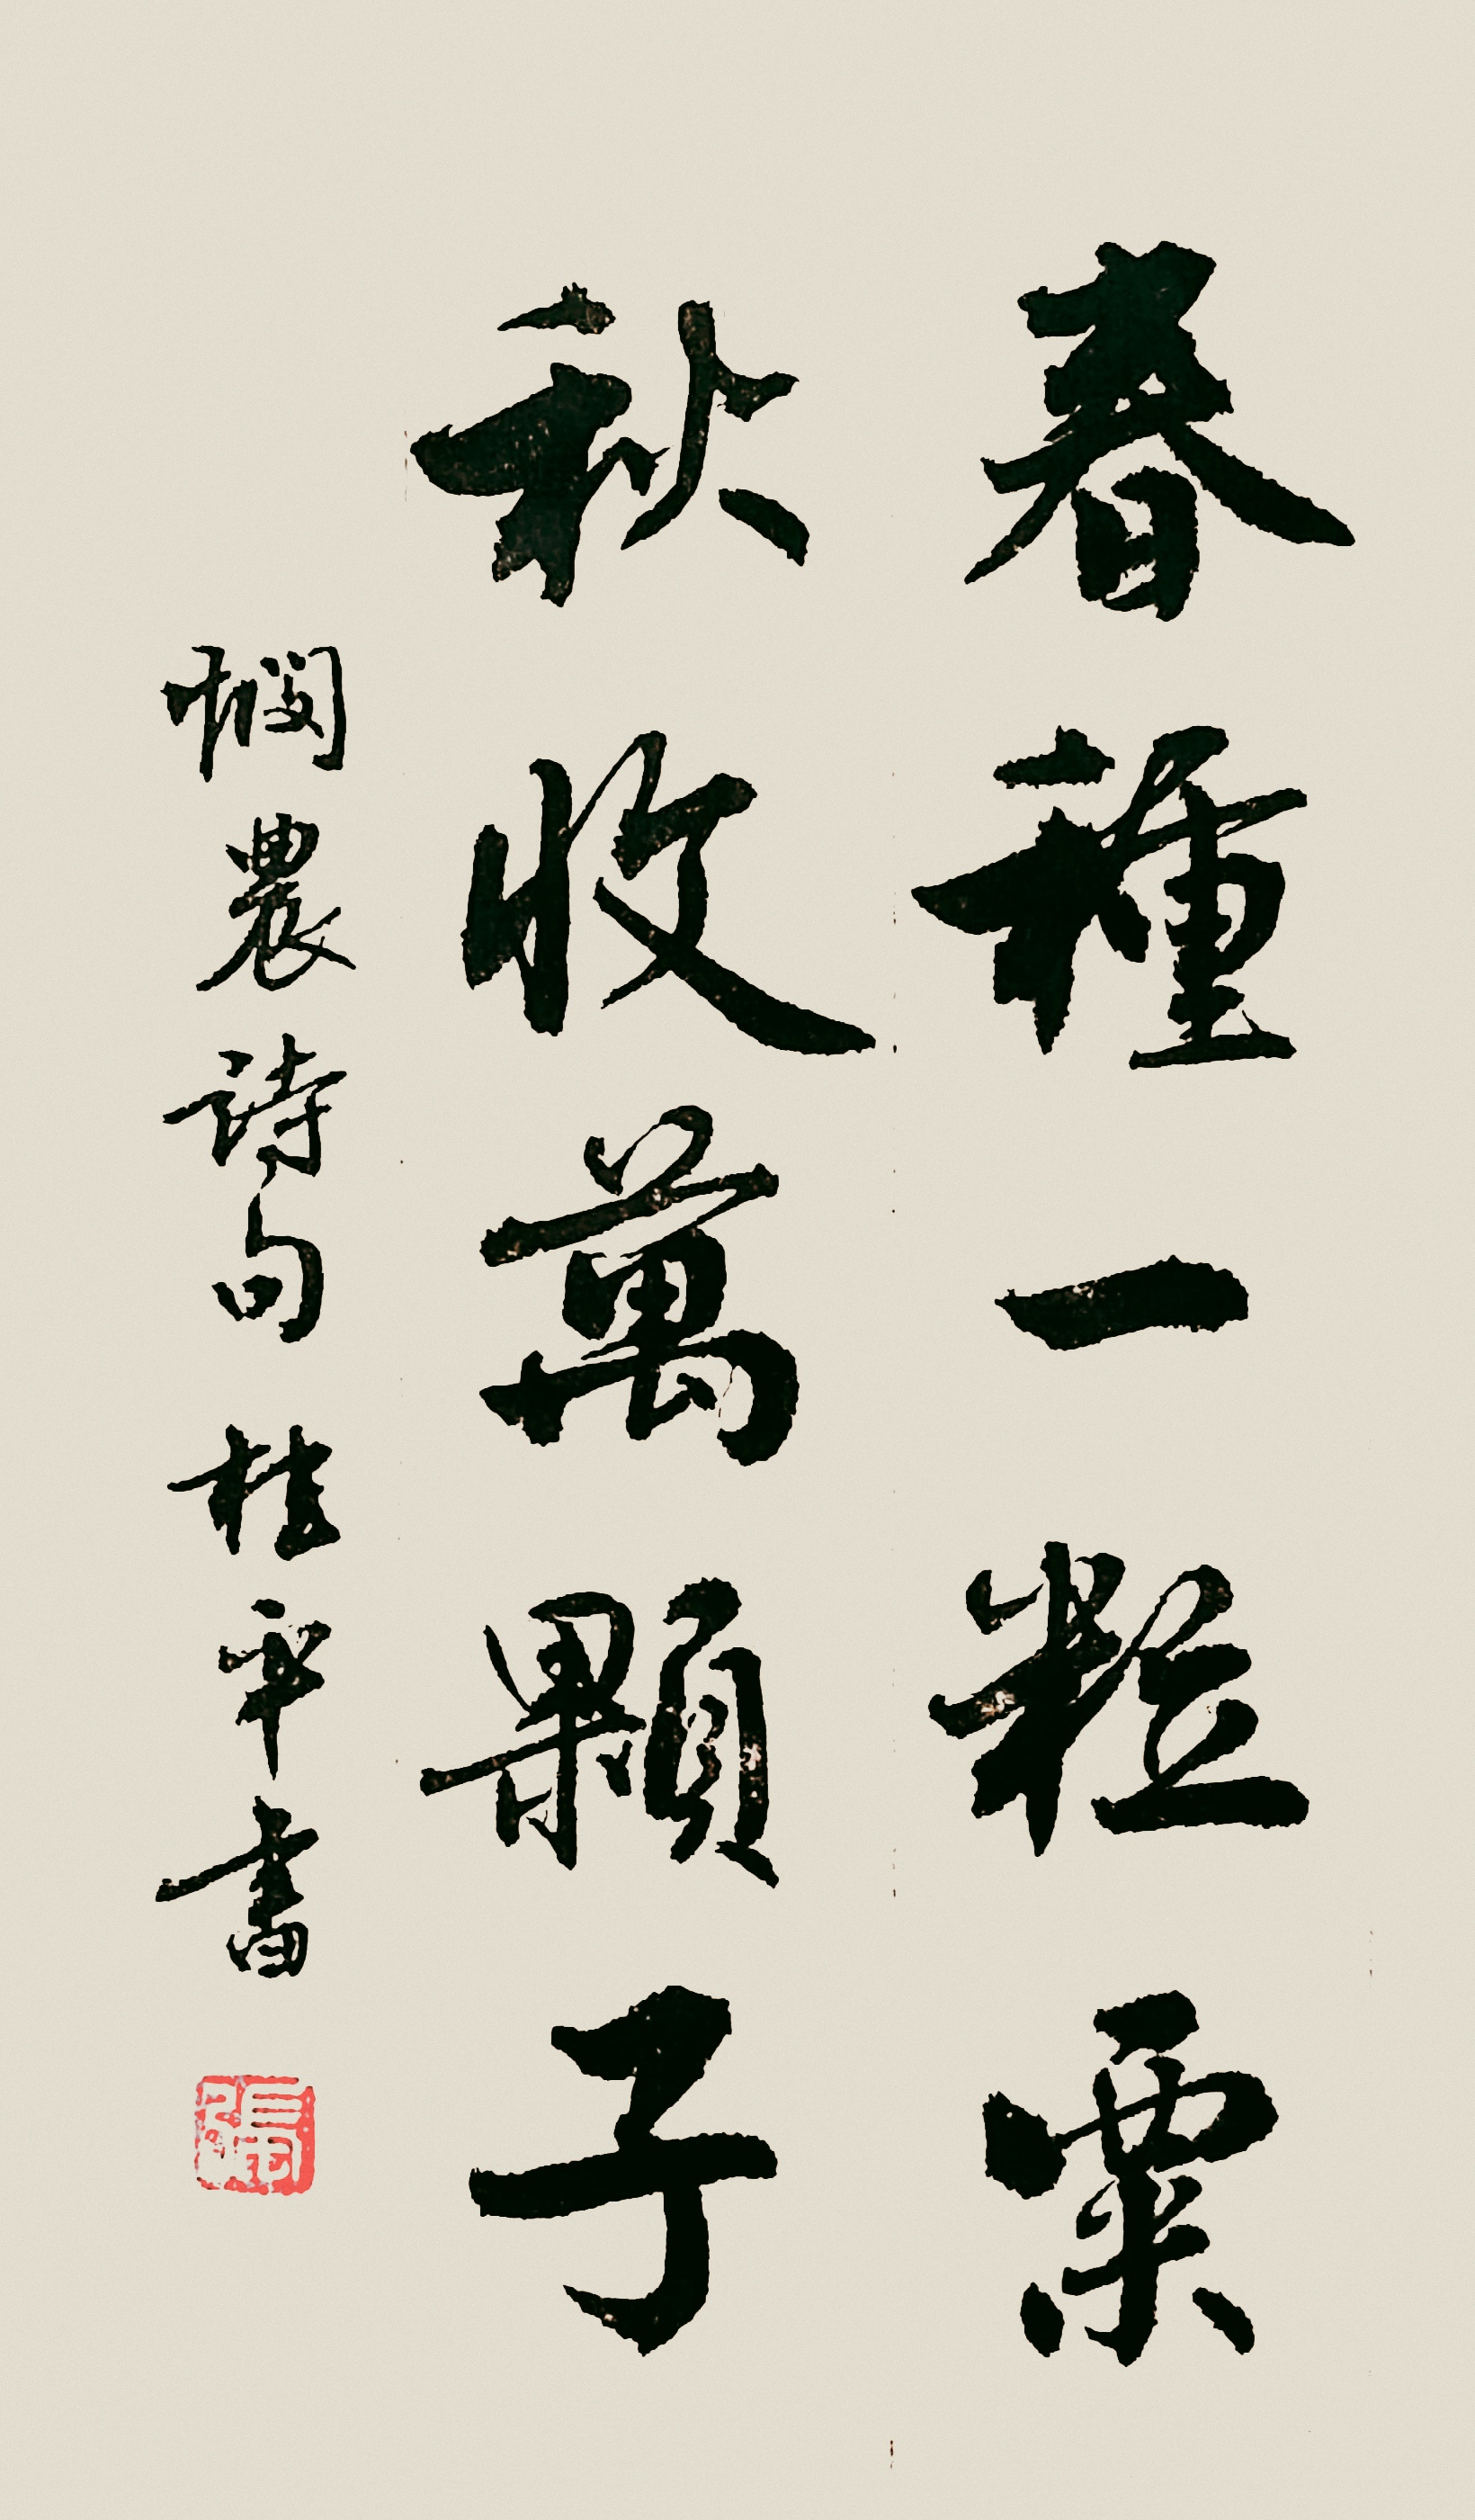 春種一粒粟
秋收萬顆子
憫農詩句 桂平書